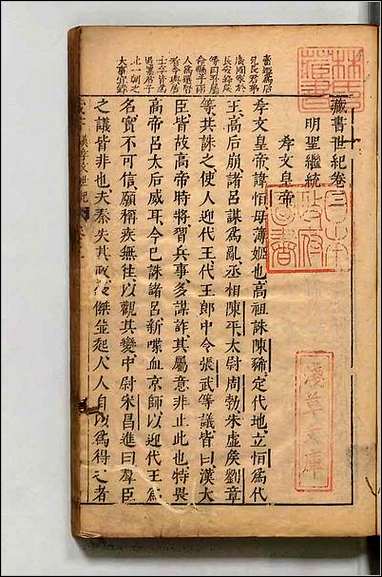 藏書世紀卷三
明聖繼統
孝文皇帝
孝文皇帝諱恒母薄姬也高祖誅陳豨定代地立恒爲代
王高后崩諸呂謀爲亂丞相陳平太尉周勃朱虛矦劉章
等共誅之使人迎代王代王郎中令張武等議皆曰漢大
臣皆故高帝時將習兵事多謀詐其屬意非止此也特畏
高帝呂太后威耳今已誅諸呂新喋血京師以迎代王爲
名實不可信願稱疾無往以觀其變中尉宋昌進曰羣臣
之議皆非也夫秦失其政豪傑並起人人自以爲得之者
林氏
藏書
日本
政府
圖書
淺草文庫